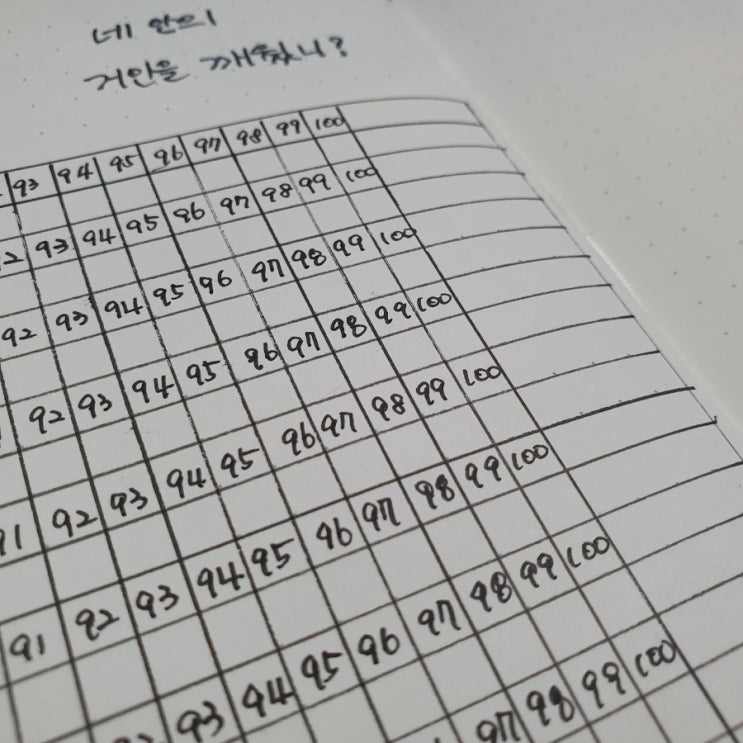 네 안의
거인을 깨웠니?
93 94 95 96 97 98 99 100
92 93 94 95 96 97 98 99 100
92 93 94 95 96 97 98 99 100
92 93 94 95 96 97 98 99 100
91 92 93 94 95 96 97 98 99 100
91 92 93 94 95 96 97 98 99 100
93 94 95 96 97 98 99 100
97 98 99 100